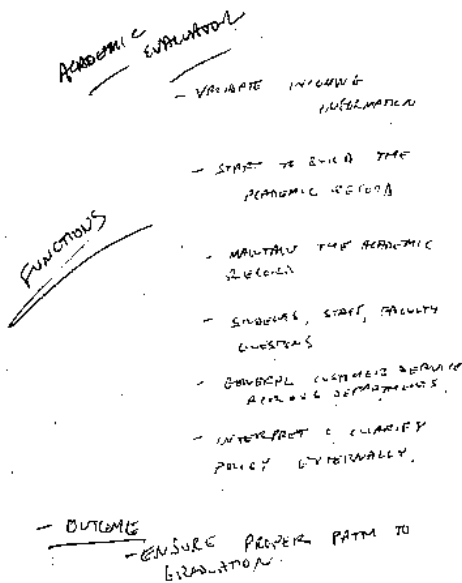 ACADEMIC
EVALUATION
- VALIDATE INCOMING
INFORMATION
- START TO BUILD THE
ACADEMIC RECORD
FUNCTIONS
- MAINTAIN THE ACADEMIC
RECORD
- STUDENTS, STAFF, FACULTY
QUESTIONS
- GENERAL CUSTOMER SERVICE
ACROSS DEPARTMENTS.
- INTERPRET & CLARIFY
POLICY EXTERNALLY.
- OUTCOME
- ENSURE PROPER PATH TO
GRADUATION.